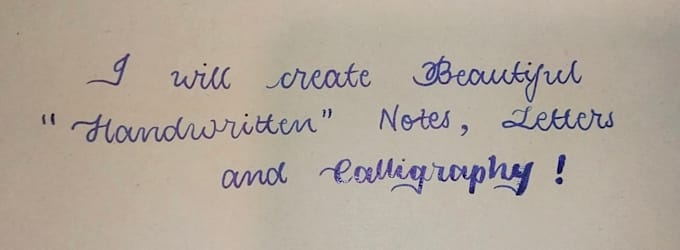 I will create Beautiful
"Handwritten" Notes, Letters
and Calligraphy!